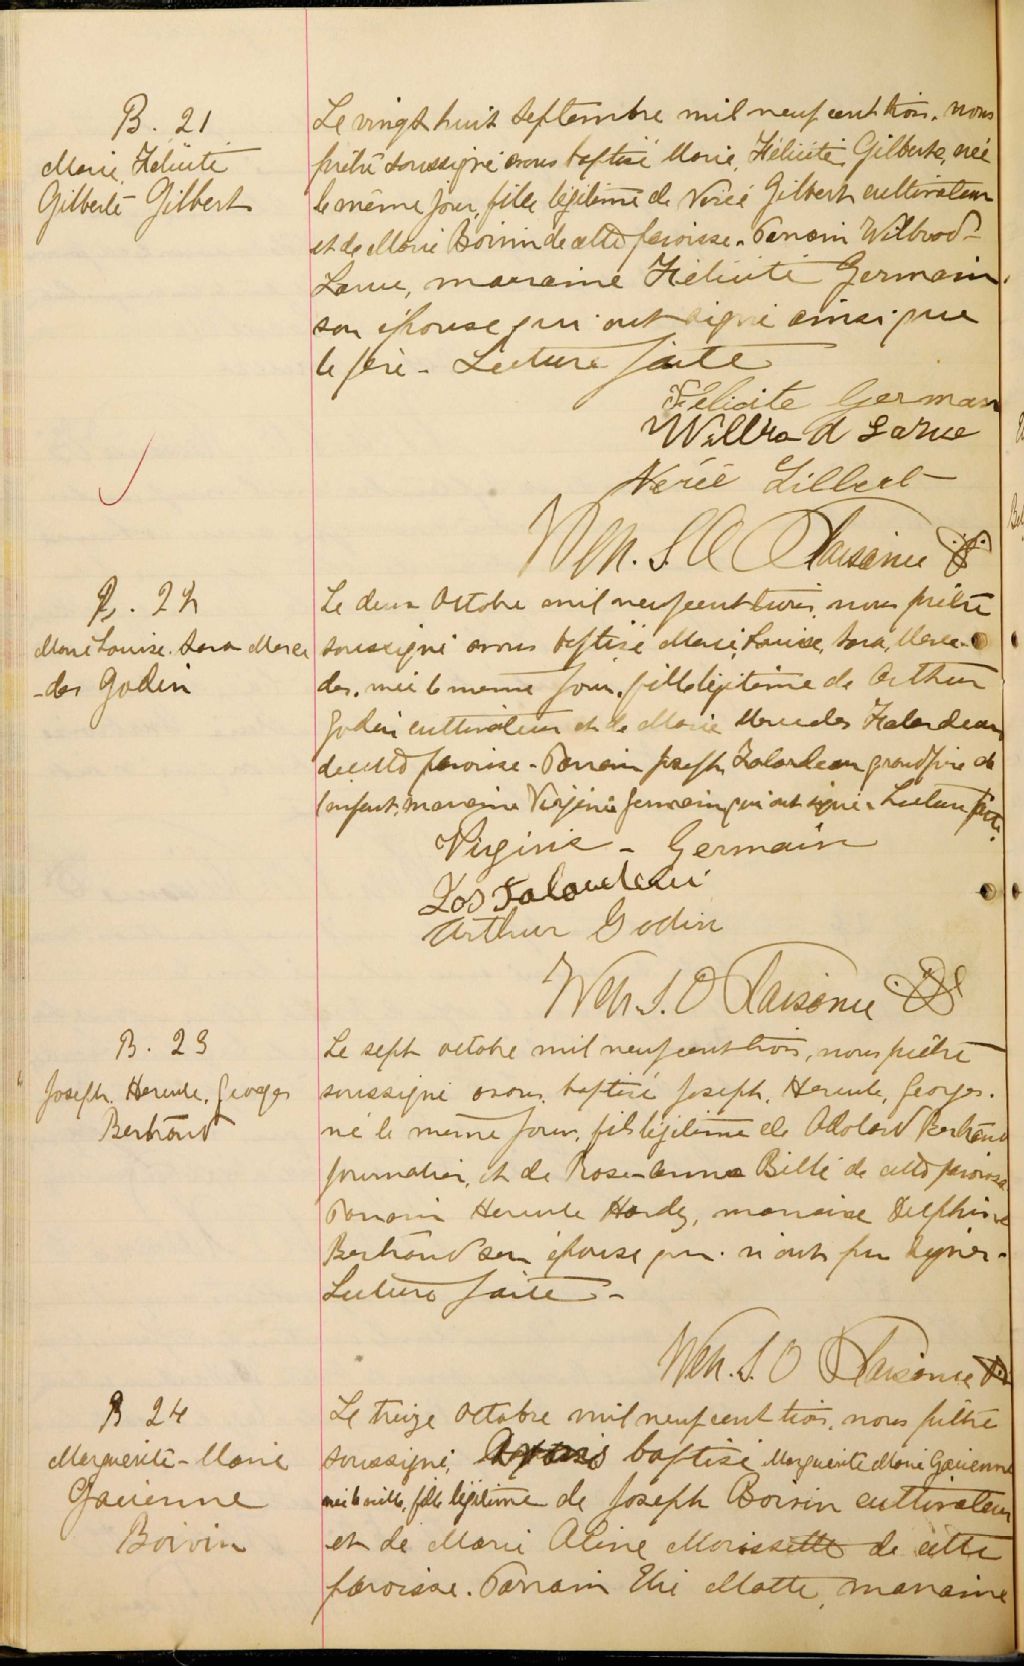 B. 21
Marie, Félicité
Gilberte Gilbert
Le vingt huit Septembre mil neuf cent trois, nous
prêtre soussigné avons baptisé Marie, Félicité, Gilberte, née
le même jour, fille légitime de Nérée Gilbert cultivateur
et de Marie Boivin de cette paroisse. Parrain Wilbrod
Larue, marraine Félicité Germain,
son épouse qui ont signé ainsi que
le père - Lecture faite
Félicite German
Willbrod Larue
Nérée Gilbert
Wm. S. O. Plaisance
B. 22
Marie Louise. Sara Merce
-des Godin
Le deux Octobre mil neuf cent trois, nous prêtre
soussigné avons baptisé Marie, Louise, Sara, Merce-
des, née le meme jour, fille légitime de Arthur
Godin cultivateur et de Marie Mercedes Falardeau
de cette paroisse - Parrain Joseph Falardeau grand père de
l'enfant, marraine Virginie Germain qui ont signé. Lecture faite.
Virginie - Germain
Jos Falardeau
Arthur Godin
Wm. S. O Plaisance
B. 23
Joseph, Hercule, Georges
Bertrand
Le sept octobre mil neuf cent trois, nous prêtre
soussigné avons baptisé Joseph, Hercule, Georges.
né le meme jour, fils légitime de Adolard Bertrand
journalier, et de Rose-Anna de cette paroisse
Parrain Hercule Hardy, marraine Delphine
Bertrand son épouse qui n'ont pu signer -
Lecture faite -
Wm. S. O Plaisance
B 24
Marguerite - Marie
Gavienne
Boivin
Le treize Octobre mil neuf cent trois, nous prêtre
soussigné, avons baptisé Marguerite Marie Gavienne
née la veille, fille légitime de Joseph Boivin cultivateur
et de Marie Aline Morissette de cette
paroisse. Parrain Elie Matte, marraine